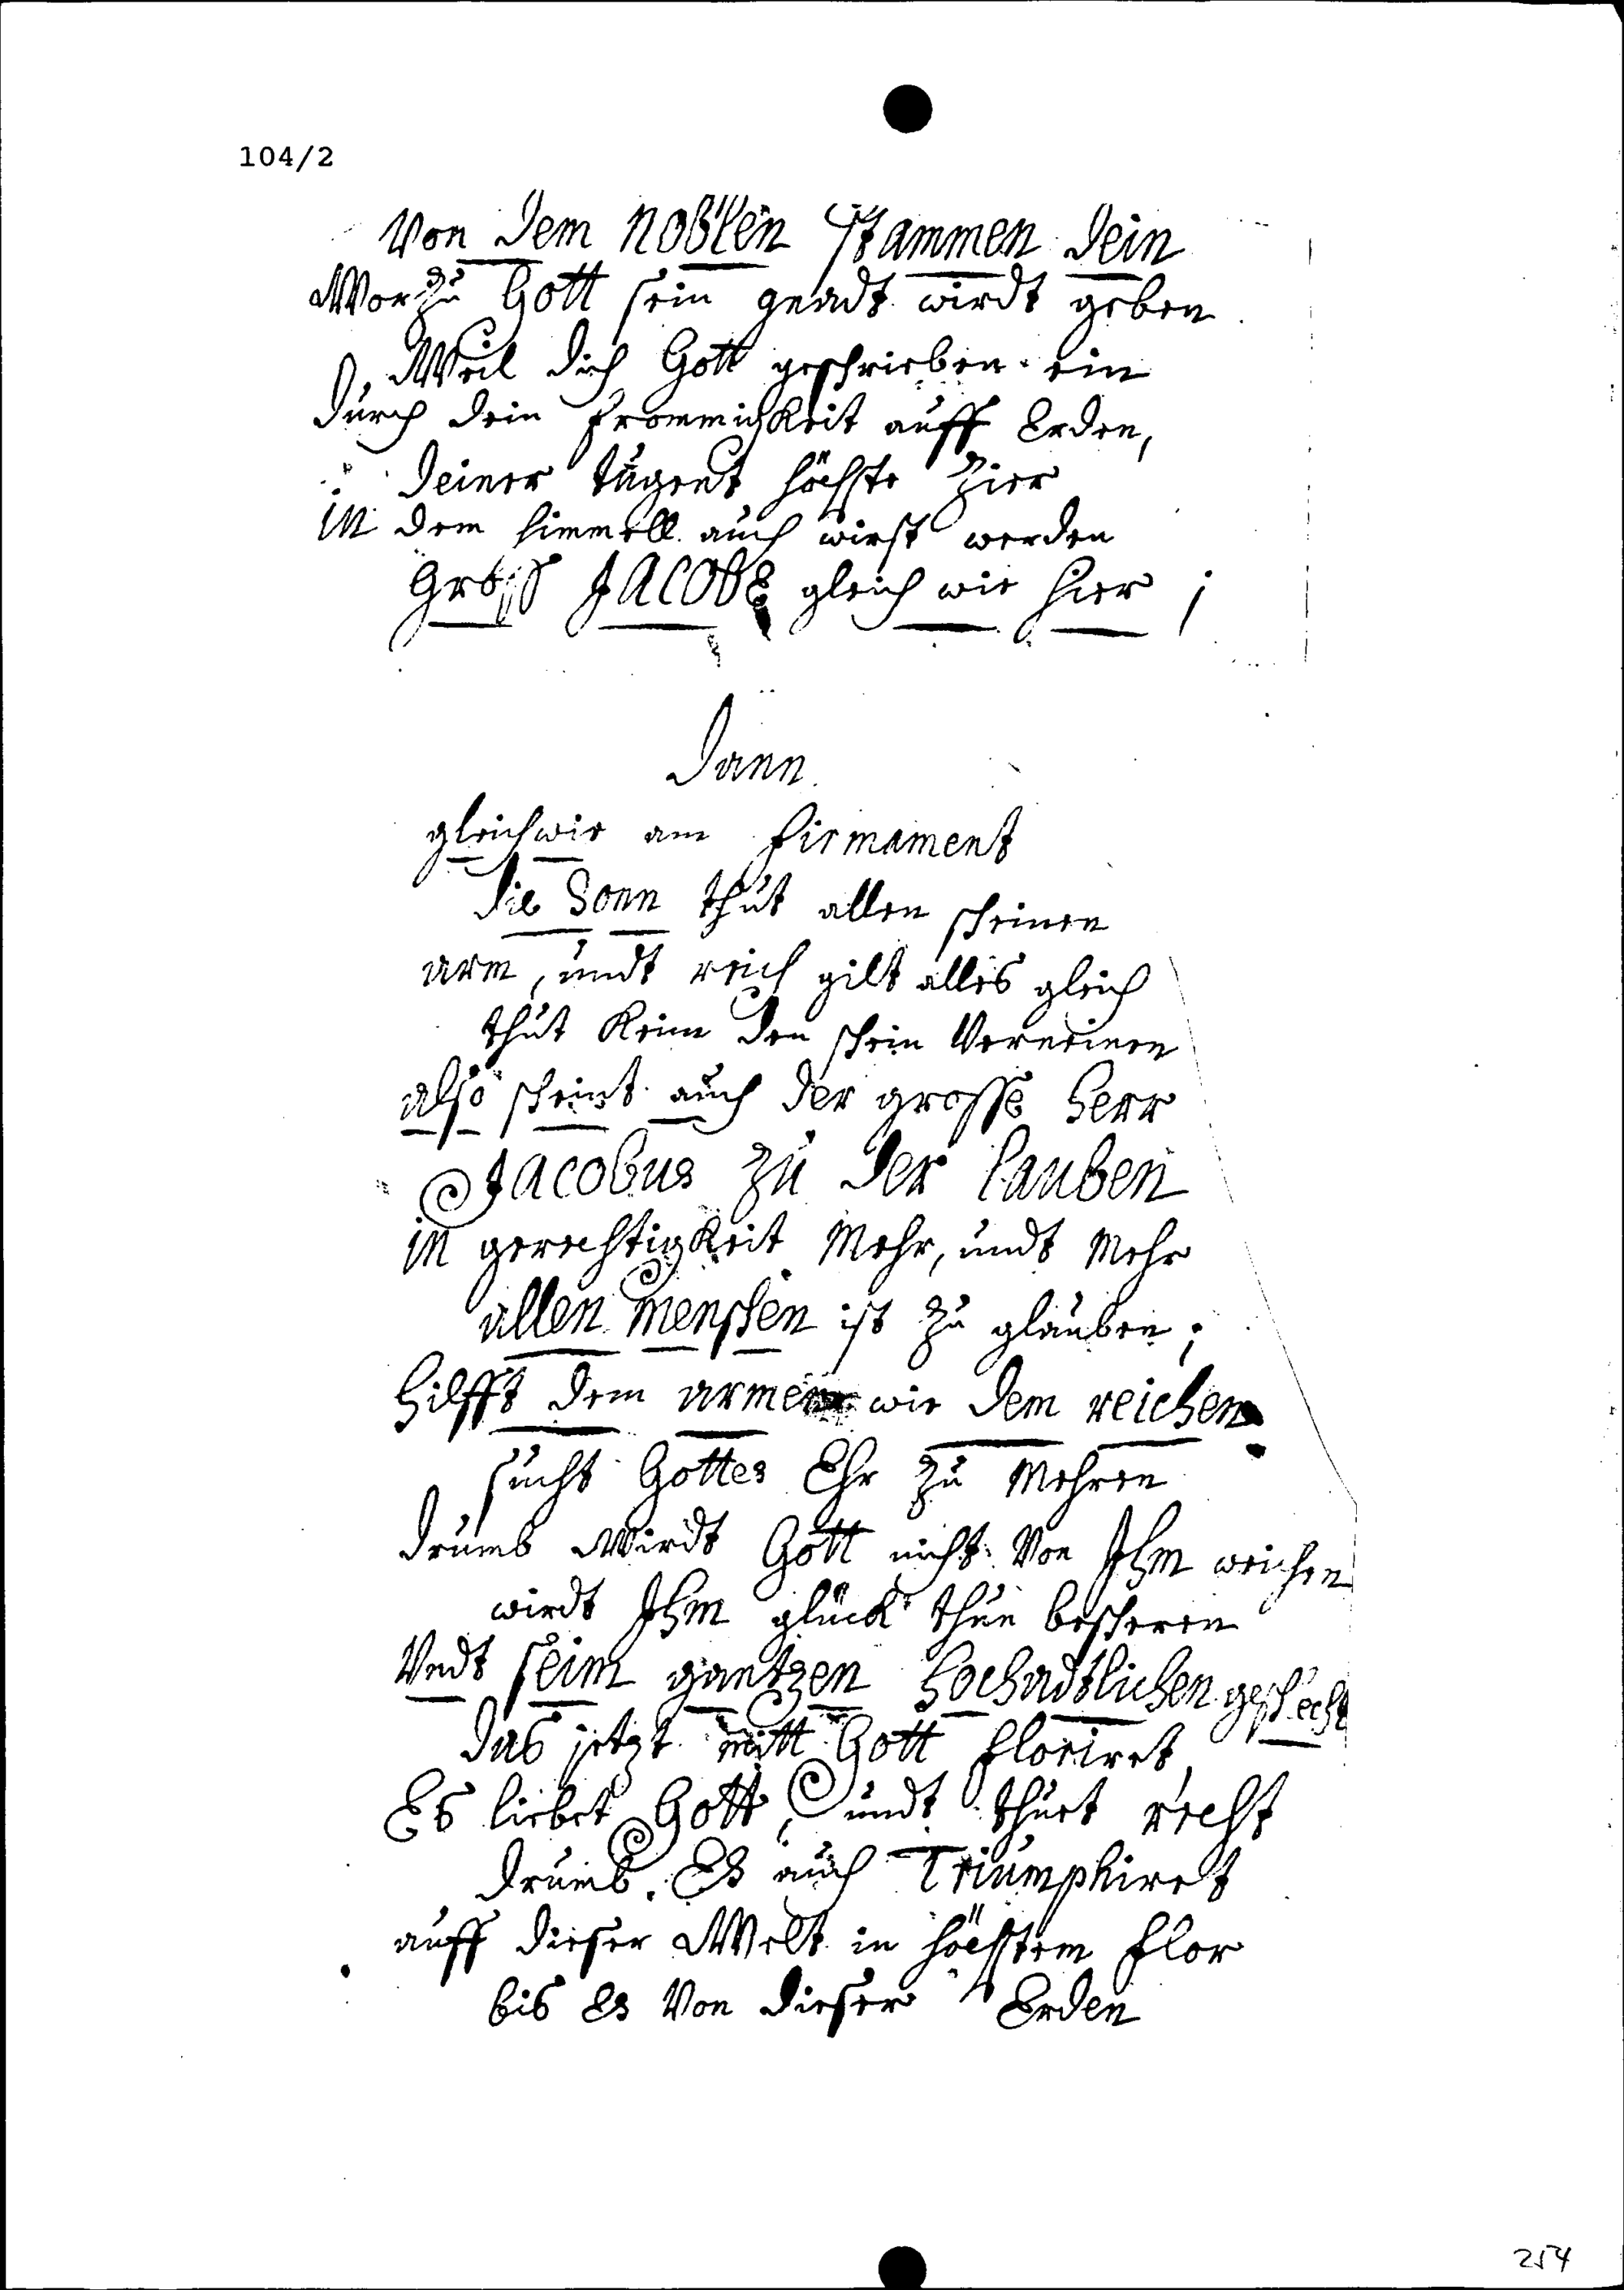 104/2
Von dem Noblen Stammen dein
Worzu Gott sein gnadt wirdt geben
Weil dich Gott geschrieben ein
Durch dein frommichkeit auff Erden,
Deiner tugent höchste Zier
in dem himmell auch wirst werden
Gross JACOBE gleich wie hier ;
Dann
gleichwie am firmament
die Sonn thut allen scheinen
arm, undt reich gilt alles gleich
thut keim den schein Verneinen
also scheint auch der grosse Herr
Jacobus zu der Lauben
in gerechtigkeit Mehr, undt Mehr
allen Menschen ist zu glauben;
Hilfft dem armen wie dem reichen
sucht Gottes Ehr zu Mehren
drumb Wirdt Gott nicht Von Ihm weichen
wirdt Ihm glück thun bescheren
Undt seim gantzen Hochadtlichen geschlecht
das jetzt mitt Gott floriret
Es liebet Gott, undt thuet recht
drumb Es auch Triumphiret
auff dieser Welt in höchstem flor
bis Es Von dieser Erden
254